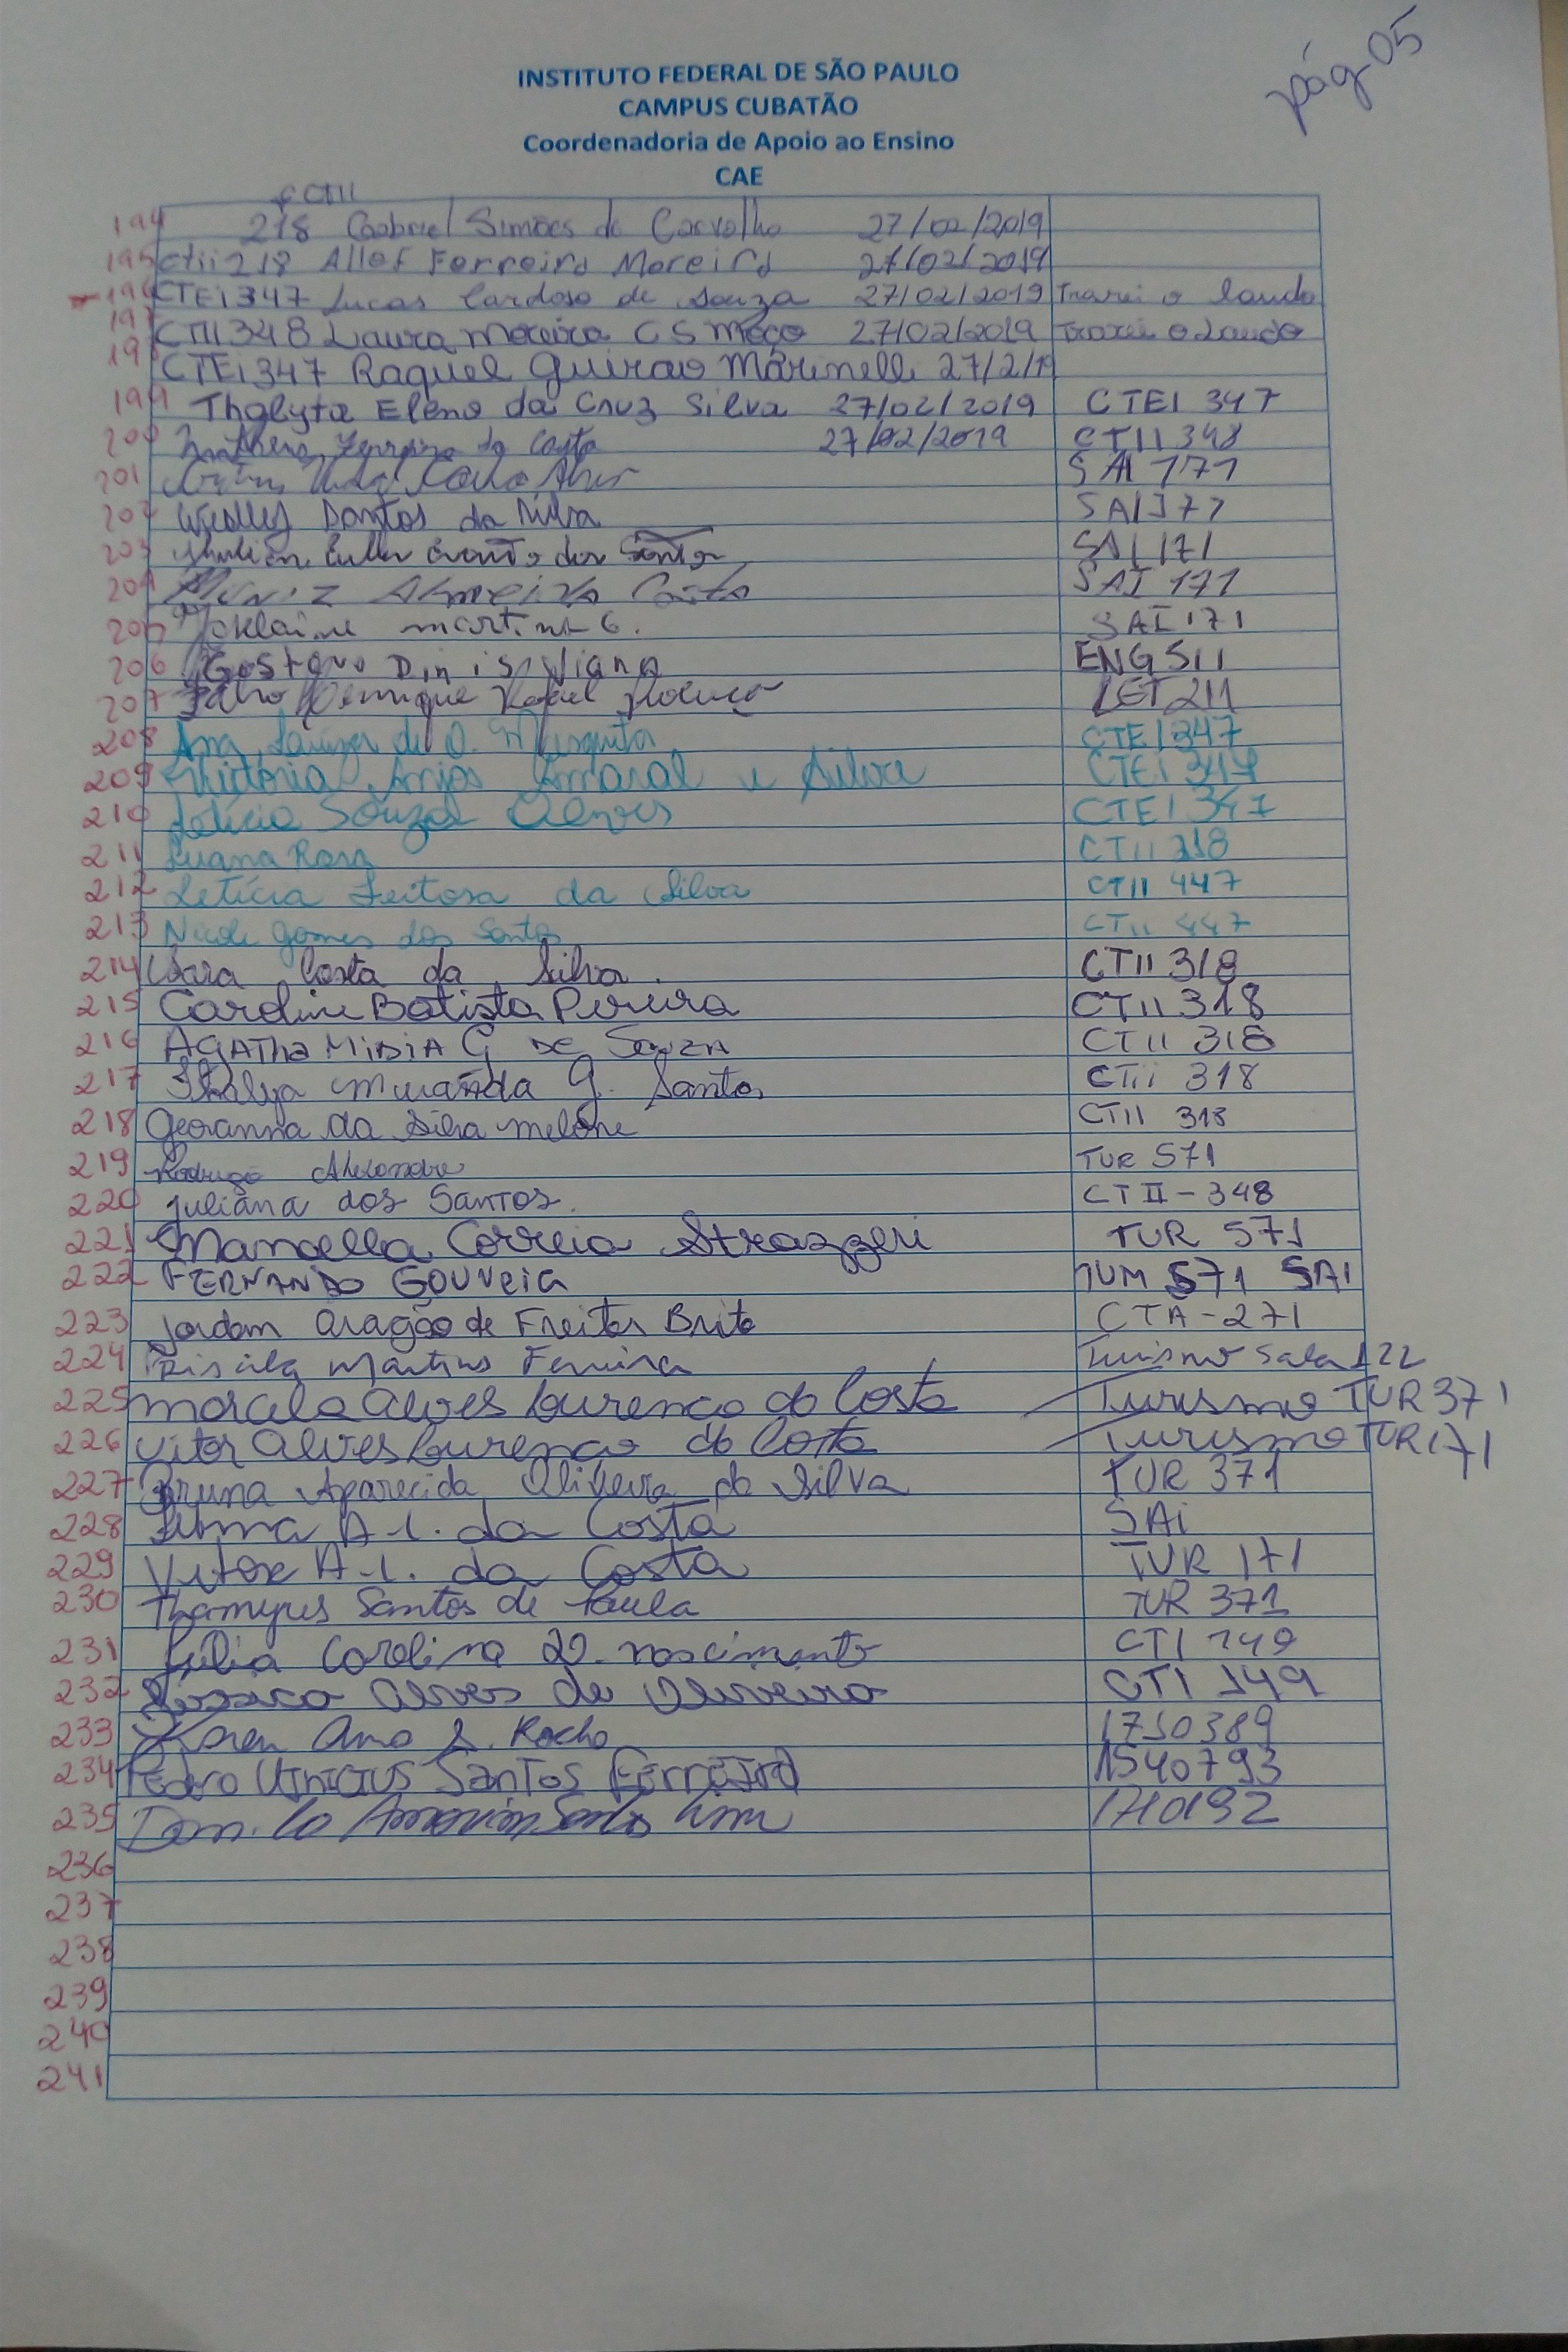 pág 05
INSTITUTO FEDERAL DE SÃO PAULO
CAMPUS CUBATÃO
Coordenadoria de Apoio ao Ensino
CAE
CTII
194 218 Gabriel Simões de Carvalho 27/02/2019
195 Ctii 218 Allef Ferreira Moreira 27/02/2019
196 CTEI 347 Lucas Cardoso de Souza 27/02/2019 Trarei o laudo
197 CTII 348 Laura Moreira C S Moço 27/02/2019 Trarei o Laudo
198 CTEi 347 Raquel Guirao Marinelli 27/2/19
199 Thalyta Elena da Cruz Silva 27/02/2019 CTEI 347
200 Ferreira da Costa 27/02/2019 CTII 348
201 SAI 171
202 Weslley Santos da Silva SAI 171
203 dos Santos SAI 171
204 Almeida Costa SAI 171
205 Joselaine martins G. SAI 171
206 Gustavo Dinis Viana ENG 511
207 Henrique Rafael LET 211
208 Ana de O. Mesquita CTEI 347
209 Victória Anjos Amaral e Silva CTEI 347
210 Letícia Souza Alves CTEI 347
211 Luana Rosa CTII 318
212 Letícia Feitosa da Silva CTII 447
213 Nicole Gomes dos Santos CTII 447
214 Costa da Silva. CTII 318
215 Caroline Batista Pereira CTII 318
216 AGATHA MIDIA G DE SOUZA CTII 318
217 Miranda G. Santos CTii 318
218 Geovanna da Silva melone CTII 318
219 Rodrigo Alexandre TUR 571
220 Juliana dos Santos. CTII - 348
221 Marcella Correia Strazzeri TUR 571
222 FERNANDO GOUVEIA TUM 571 SAI
223 Jordam Aragão de Freitas Brito CTA - 271
224 Priscila Martins Ferreira Turismo Sala 122
225 Marcela Alves Lourenco da Costa Turismo TUR 371
226 Vitor Alves Lourenço da Costa Turismo TUR 171
227 Bruna Aparecida Oliveira da Silva TUR 371
228 A. L. da Costa SAi
229 Vitor A. L. da Costa TUR 171
230 Thamyres Santos de Paula TUR 371
231 Júlia Carolina D. nascimento CTI 149
232 Jéssica Alves de Oliveira CTI 149
233 Karen Ana S. Rocha 1730389
234 Pedro Vinicius Santos Ferreira 1540793
235 Danilo Lima 1710192
236
237
238
239
240
241